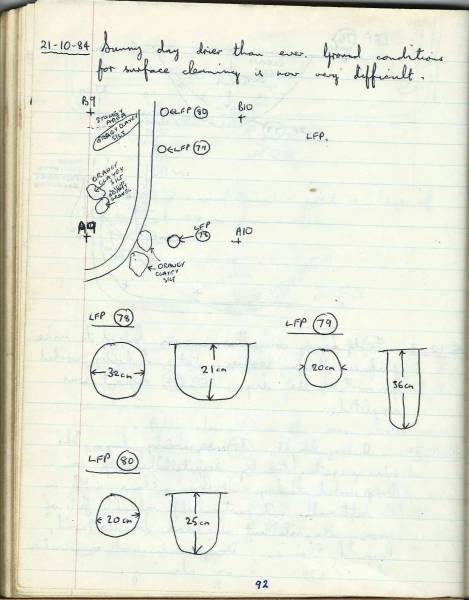 21-10-84 Sunny day drier than ever. Ground conditions
for surface cleaning is now very difficult.
B9
STONEY AREA
ORANGY CLAYEY SILT
LFP 80
B10
LFP 79
LFP.
ORANGY CLAYEY SILT
GRAVEL
A9
LFP 78
A10
ORANGY CLAYEY SILT
LFP 78
LFP 79
32cm
21cm
20cm
36cm
LFP 80
20cm
25cm
92